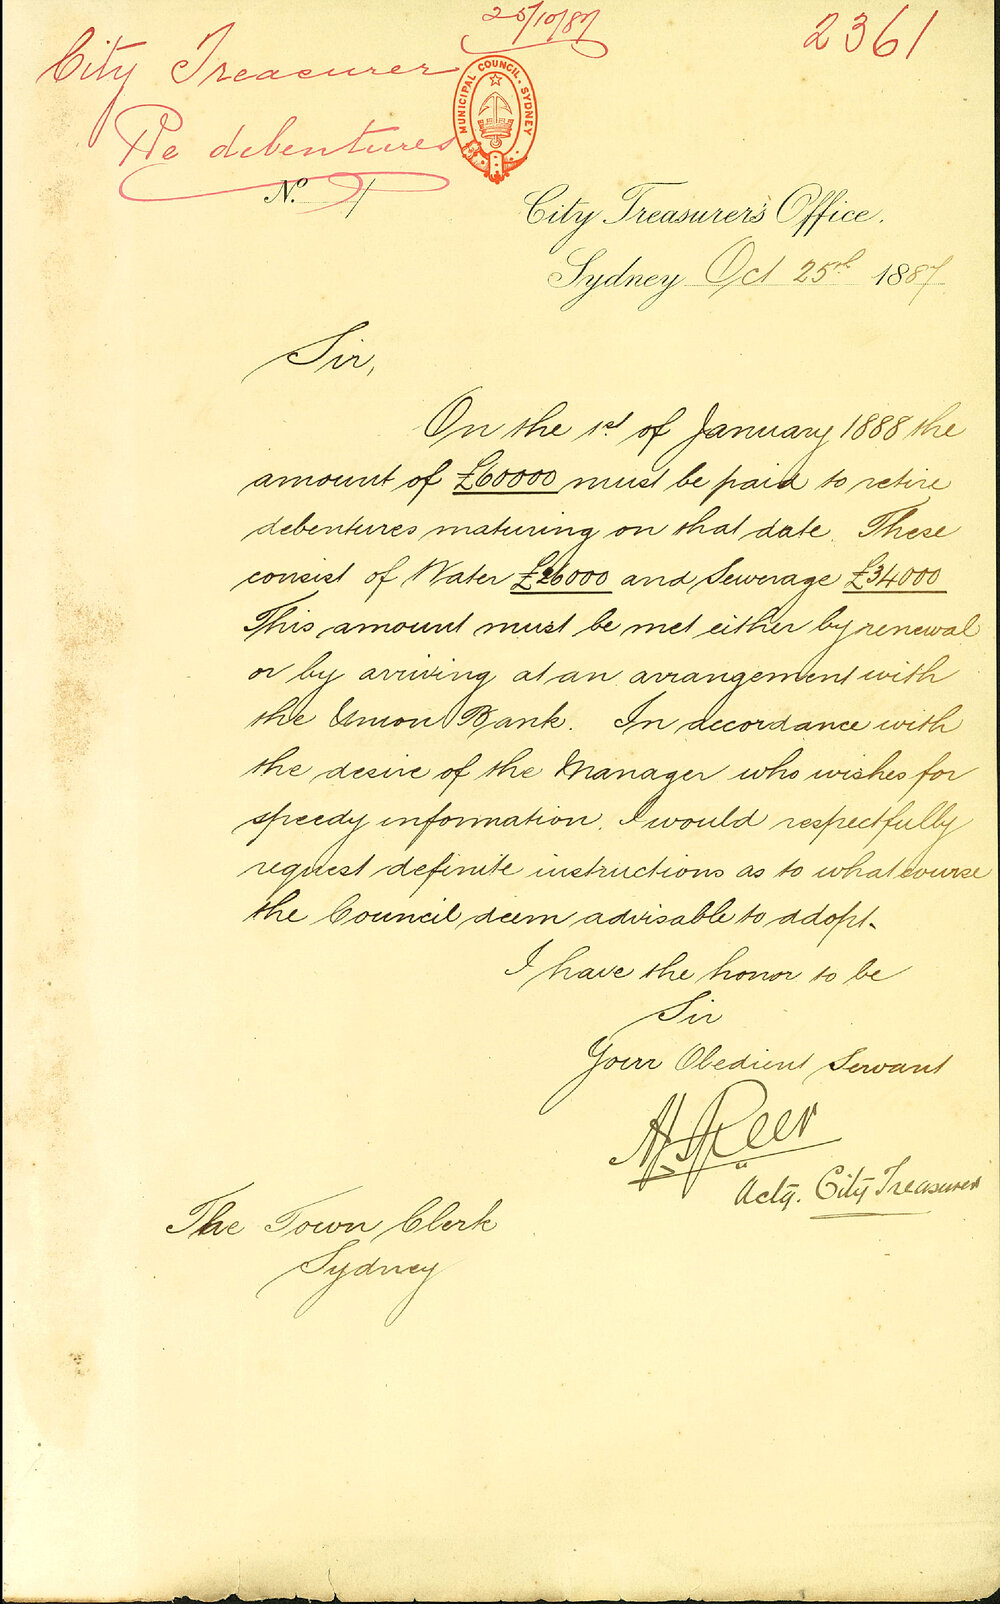 25/10/87
2361
City Treasurer
Re debentures
MUNICIPAL COUNCIL. SYDNEY
No.
City Treasurer's Office.
Sydney Oct 25th 1887
Sir,
On the 1st of January 1888 the
amount of £60000 must be paid to retire
debentures maturing on that date. These
consist of Water £26000 and Sewerage £34000
This amount must be met either by renewal
or by arriving at an arrangement with
the Union Bank. In accordance with
the desire of the Manager who wishes for
speedy information. I would respectfully
request definite instructions as to what course
the Council deem advisable to adopt.
I have the honor to be
Sir
Your Obedient Servant
Actg. City Treasurer
The Town Clerk
Sydney